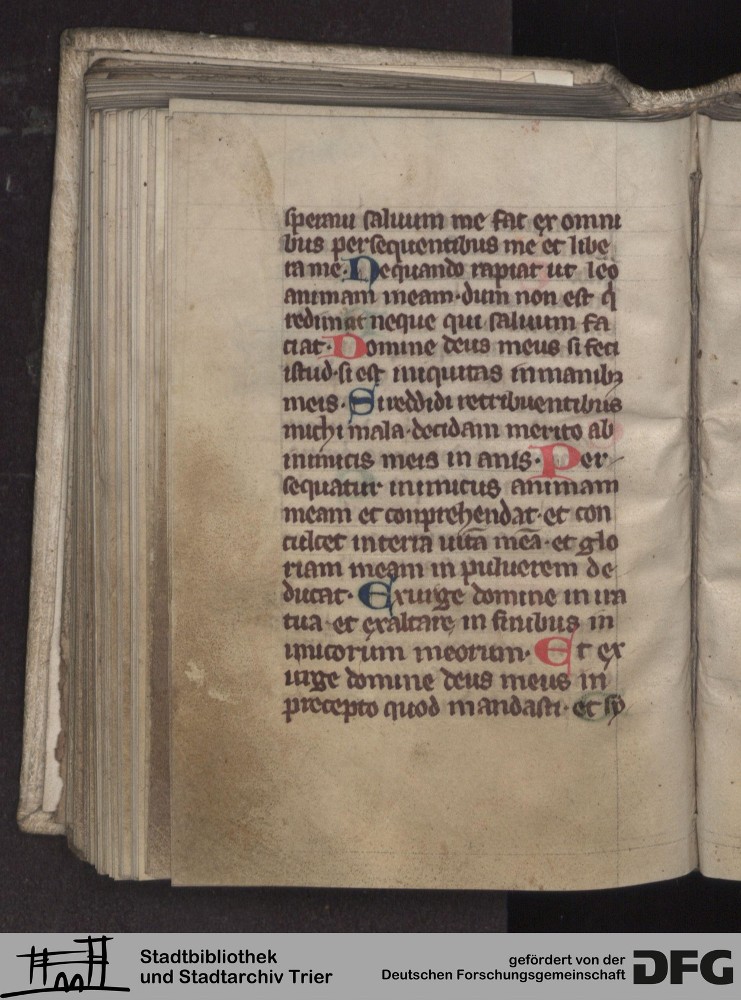 speraui saluum me fac ex omni
bus persequentibus me et libe
ra me. Nequando rapiat ut leo
animam meam·dum non est q̇
redimat neque qui saluum fa
ciat· Domine deus meus si feci
istud·si est iniquitas inmanibꝫ
meis· Si reddidi retribuentibus
michi mala·decidam merito ab
inimicis meis in anis· Per
sequatur inimicus animam
meam et conprehendat·et con
culcet interra uitā meā·et glo
riam meam in puluerem de
ducat· Exurge domine in ira
tua·et exaltare in finibus in
imicorum meorum· Et ex
urge domine deus meus in
precepto quod mandasti·et sy
Stadtbibliothek
und Stadtarchiv Trier
gefördert von der
Deutschen Forschungsgemeinschaft DFG